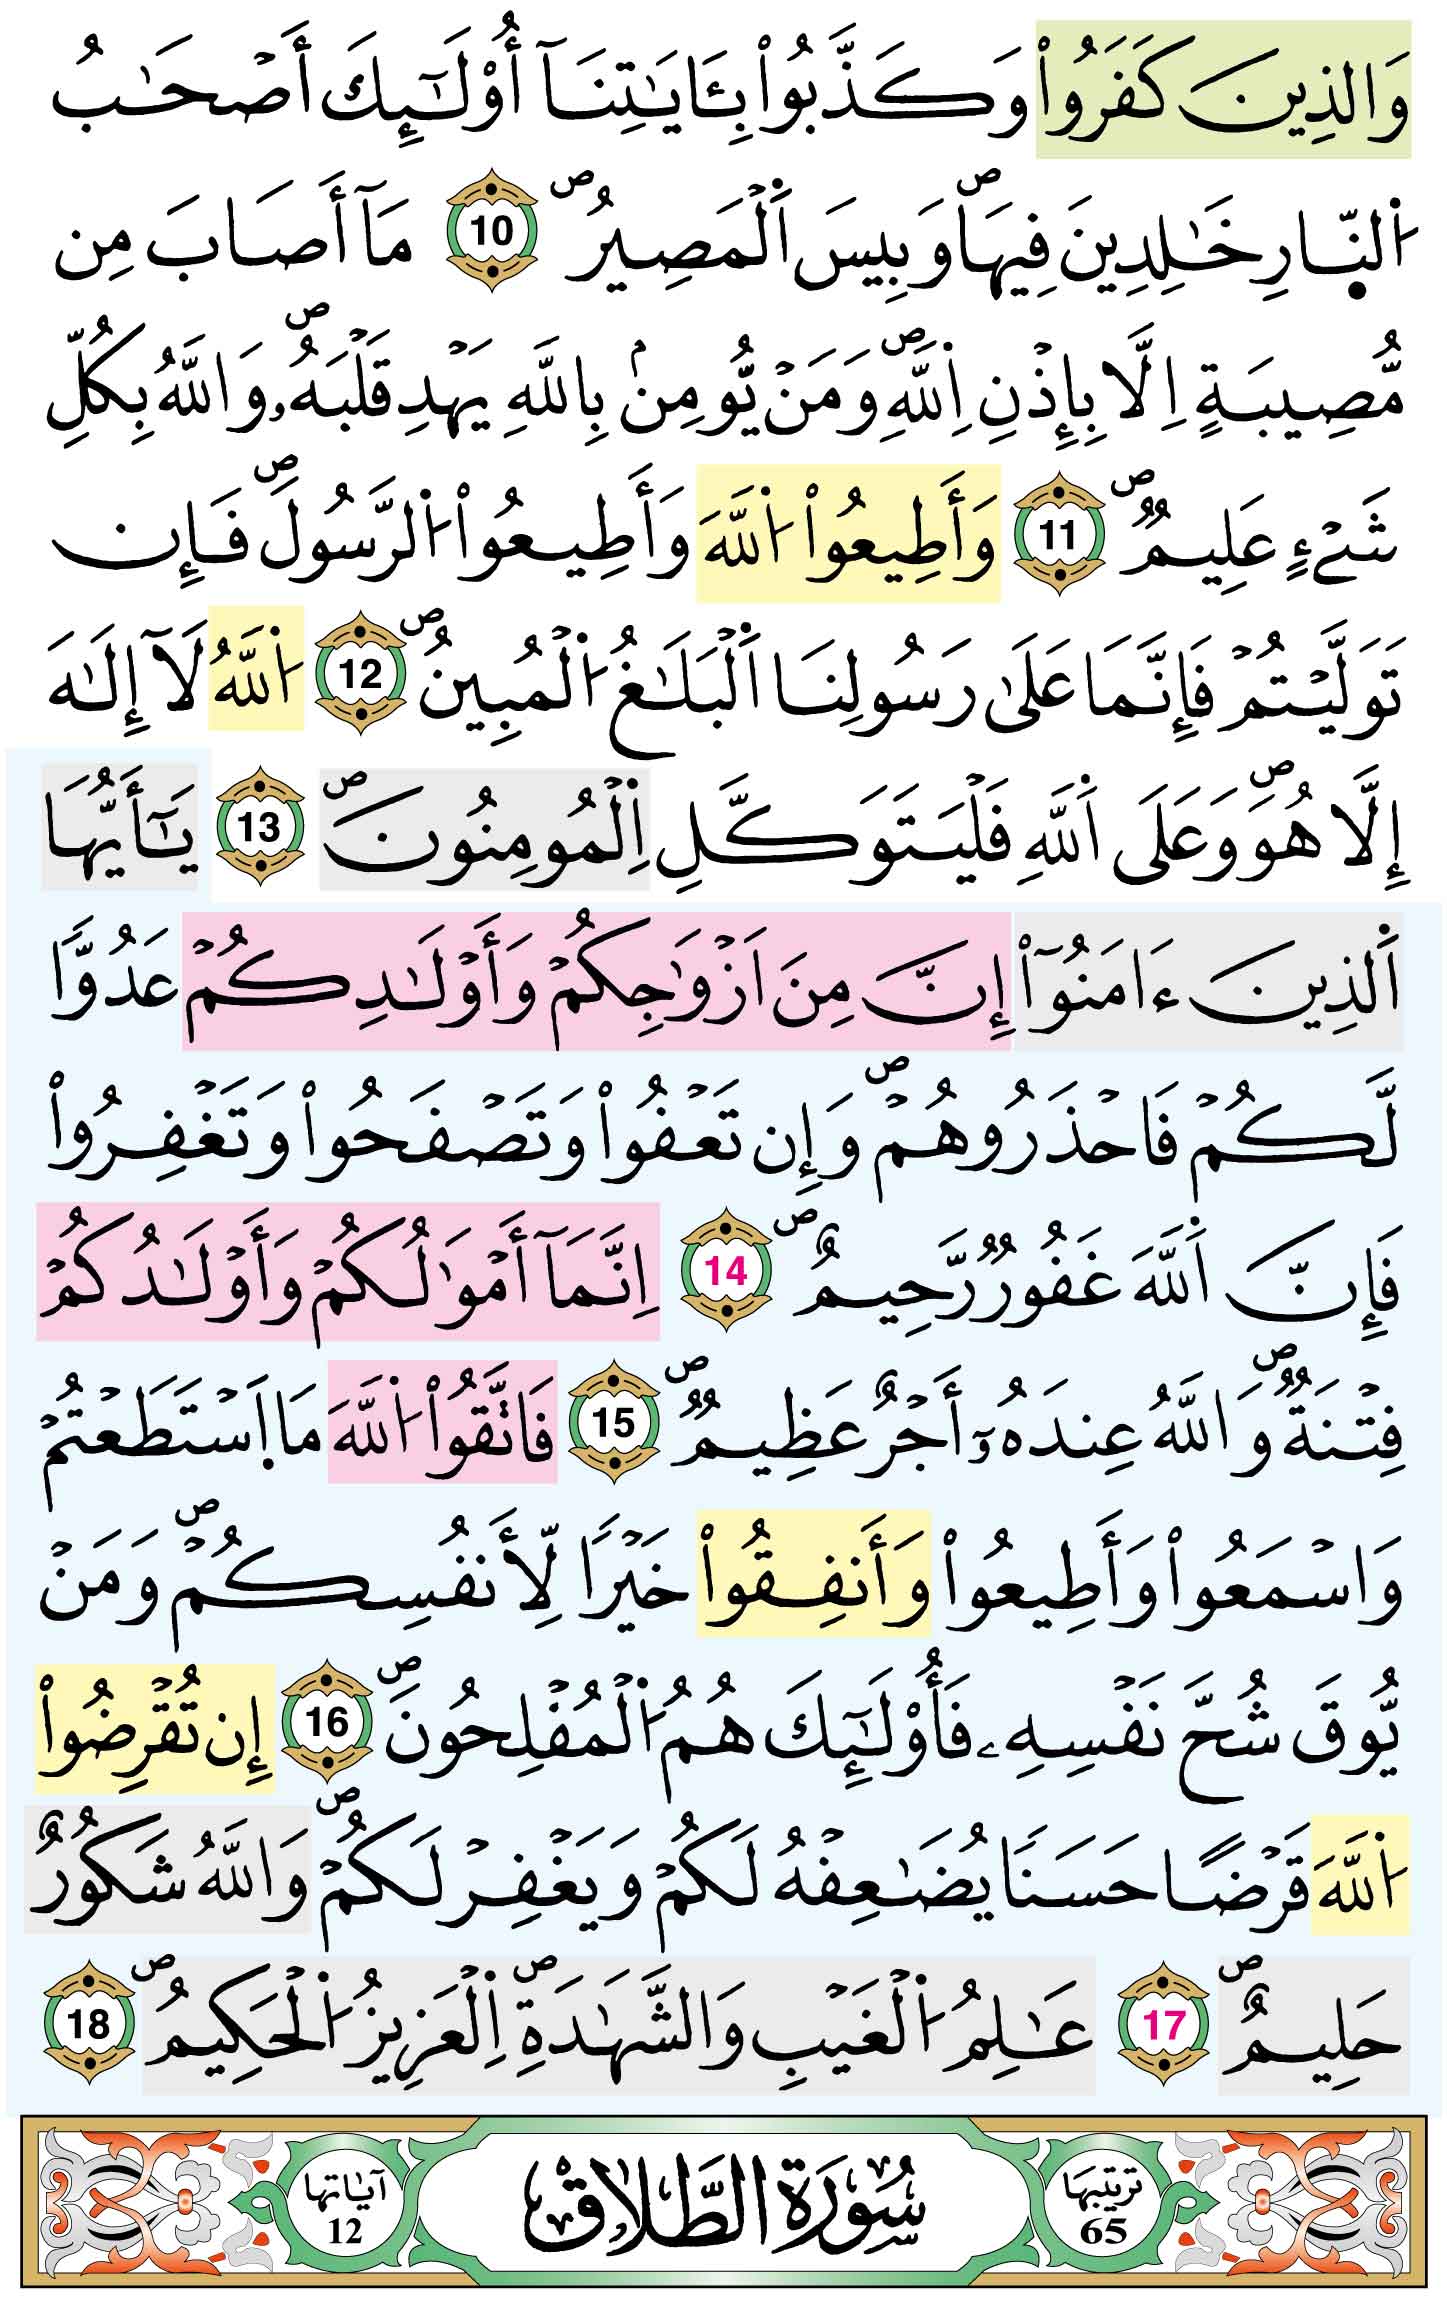 وَالذِينَ كَفَرُواْ وَكَذَّبُواْ بِـَٔايَٰتِنَآ أُوْلَٰٓئِكَ أَصْحَٰبُ
اُ۬لنّ۪ارِ خَٰلِدِينَ فِيهَاۖ وَبِيسَ اَ۬لْمَصِيرُۖ 10 مَآ أَصَابَ مِن
مُّصِيبَةٍ اِلَّا بِإِذْنِ اِ۬للَّهِۖ وَمَنْ يُّومِنۢ بِاللَّهِ يَهْدِ قَلْبَهُۥۖ وَاللَّهُ بِكُلِّ
شَےْءٍ عَلِيمٌۖ 11 وَأَطِيعُواْ اُ۬للَّهَ وَأَطِيعُواْ اُ۬لرَّسُولَۖ فَإِن
تَوَلَّيْتُمْ فَإِنَّمَا عَلَىٰ رَسُولِنَا اَ۬لْبَلَٰغُ اُ۬لْمُبِينُۖ 12 اُ۬للَّهُ لَآ إِلَٰهَ
إِلَّا هُوَۖ وَعَلَى اَ۬للَّهِ فَلْيَتَوَكَّلِ اِ۬لْمُومِنُونَۖ 13 يَٰٓأَيُّهَا
اَ۬لذِينَ ءَامَنُوٓاْ إِنَّ مِنَ اَزْوَٰجِكُمْ وَأَوْلَٰدِكُمْ عَدُوّاٗ
لَّكُمْ فَاحْذَرُوهُمْۖ وَإِن تَعْفُواْ وَتَصْفَحُواْ وَتَغْفِرُواْ
فَإِنَّ اَ۬للَّهَ غَفُورٞ رَّحِيمٌۖ 14 اِنَّمَآ أَمْوَٰلُكُمْ وَأَوْلَٰدُكُمْ
فِتْنَةٞۖ وَاللَّهُ عِندَهُۥٓ أَجْرٌ عَظِيمٞۖ 15 فَاتَّقُواْ اُ۬للَّهَ مَا اَ۪سْتَطَعْتُمْ
وَاسْمَعُواْ وَأَطِيعُواْ وَأَنفِقُواْ خَيْراٗ لِّأَنفُسِكُمْۖ وَمَنْ
يُّوقَ شُحَّ نَفْسِهِۦ فَأُوْلَٰٓئِكَ هُمُ اُ۬لْمُفْلِحُونَۖ 16 إِن تُقْرِضُواْ
اُ۬للَّهَ قَرْضاً حَسَناٗ يُضَٰعِفْهُ لَكُمْ وَيَغْفِرْ لَكُمْۖ وَاللَّهُ شَكُورٌ
حَلِيمٌۖ 17 عَٰلِمُ اُ۬لْغَيْبِ وَالشَّهَٰدَةِۖ اِ۬لْعَزِيزُ اُ۬لْحَكِيمُۖ 18
ترتيبها 65 سُورَةُ الطَّلَاقِ آياتها 12